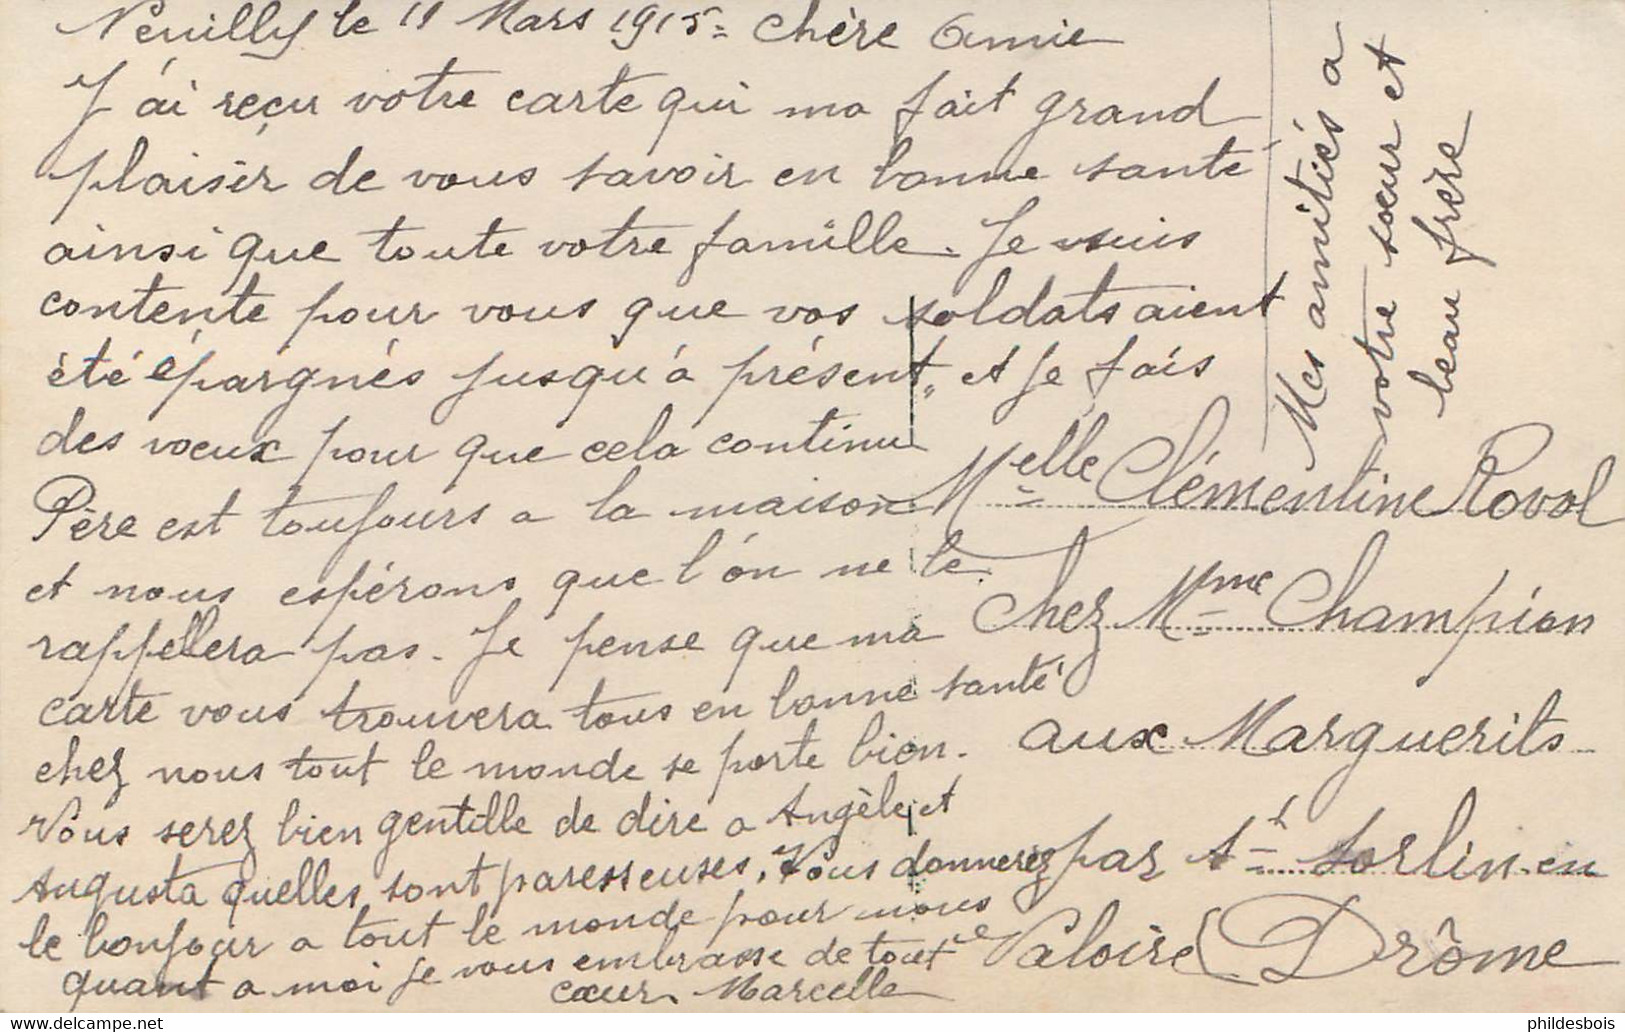 Neuilly le 11 Mars 1915 = Chère Amie
J'ai reçu votre carte qui ma fait grand
plaisir de vous savoir en bonne santé
ainsi que toute votre famille. Je suis
contente pour vous que vos soldats aient
été épargnés jusqu'à présent, et je fais
des voeux pour que cela continu
Père est toujours a la maison
et nous espérons que l'on ne le
rappellera pas. Je pense que ma
carte vous trouvera tous en bonne santé
chez nous tout le monde se porte bien.
Vous serez bien gentille de dire a Angèle et
Augusta quelles sont paresseuses. Vous donnerez
le bonjour a tout le monde pour nous
quant a moi je vous embrasse de tout
coeur. Marcelle
Mes amitiés a
votre soeur et
beau frère
Melle Clémentine Rovol
Chez Mme Champion
aux Marguerits
par St Sorlin en
Valoire (Drôme
phildesbois